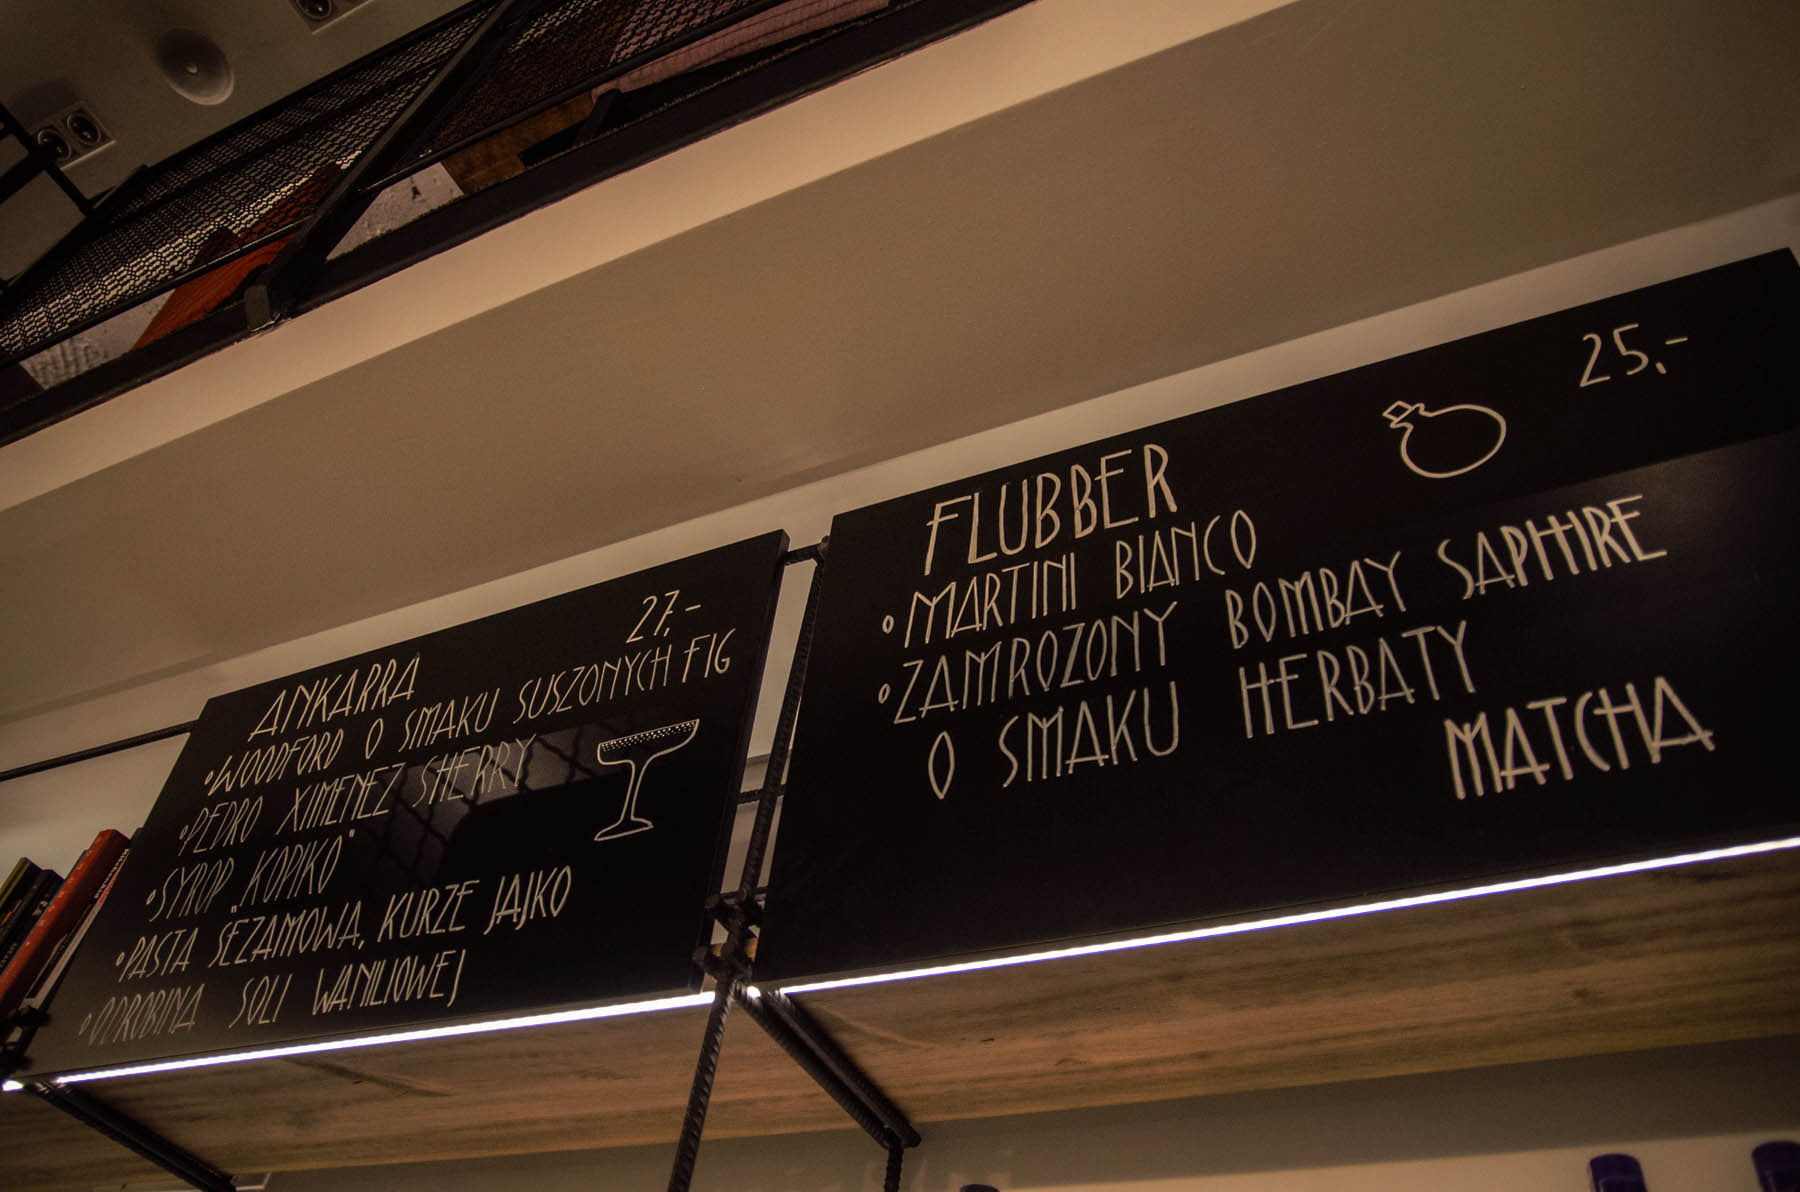 27,-
ANKARRA
WOODFORD O SMAKU SUSZONYCH FIG
PEDRO XIMENEZ SHERRY
SYROP "KOPIKO"
PASTA SEZAMOWA, KURZE JAJKO
ODROBINA SOLI WANILIOWEJ
25,-
FLUBBER
MARTINI BIANCO
ZAMROZONY BOMBAY SAPHIRE
O SMAKU HERBATY
MATCHA